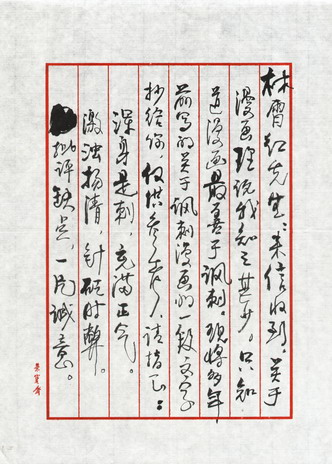 林霄红先生：来信收到，关于
漫画理论我知之甚少。只知
道漫画最善于讽刺。现将多年
前写的关于讽刺漫画的一段文字
抄给你，仅供参考，请指正：
浑身是刺，充满正气。
激浊扬清，针砭时弊。
批评缺点，一片诚意。
荣宝斋